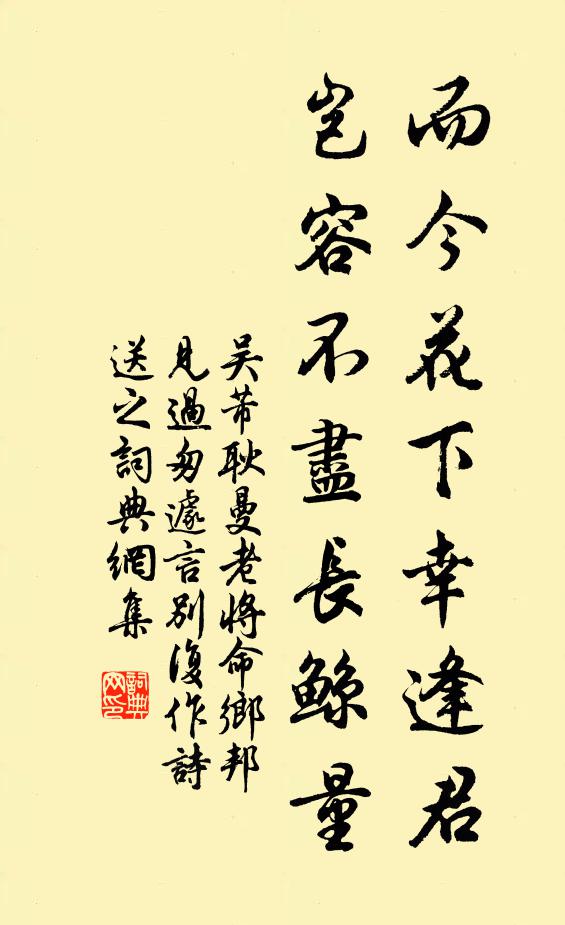 而今花下幸逢君
豈容不盡長鯨量
吴芾耿曼老將命鄉邦
見過匆遽言別復作詩
送之詞典網集
詞典網印